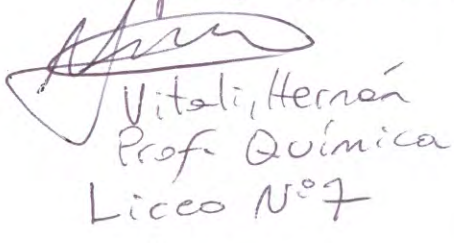 Vitali, Hernán
Prof. Química
Liceo Nº 7